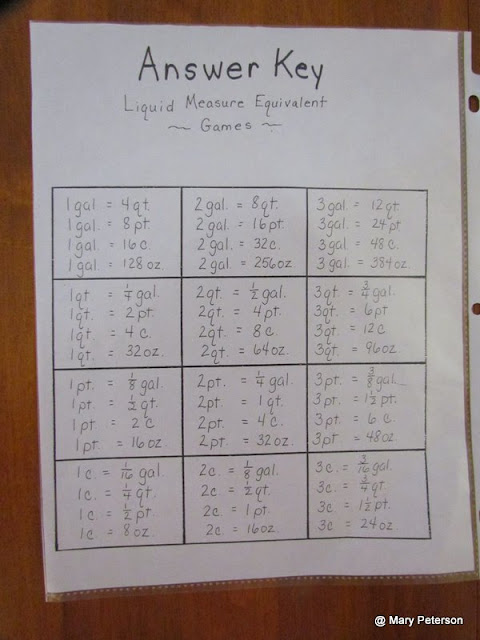 Answer Key
Liquid Measure Equivalent
~ Games ~
1 gal = 4 qt.
1 gal. = 8 pt.
1 gal. = 16 c.
1 gal = 128 oz.
2 gal. = 8 qt.
2 gal. = 16 pt.
2 gal. = 32 c.
2 gal. = 256 oz
3 gal. = 12 qt
3 gal. = 24 pt
3 gal. = 48 c.
3 gal. = 384 oz
1 qt = 1/4 gal.
1 qt. = 2 pt.
1 qt. = 4 c.
1 qt. = 32 oz.
2 qt. = 1/2 gal.
2 qt. = 4 pt.
2 qt. = 8 c
2 qt. = 64 oz.
3 qt. = 3/4 gal.
3 qt. = 6 pt
3 qt. = 12 c
3 qt. = 96 oz.
1 pt. = 1/8 gal.
1 pt. = 1/2 qt.
1 pt. = 2 c
1 pt. = 16 oz
2 pt. = 1/4 gal.
2 pt. = 1 qt.
2 pt. = 4 c.
2 pt. = 32 oz.
3 pt. = 3/8 gal.
3 pt. = 1 1/2 pt.
3 pt. = 6 c
3 pt. = 48 oz
1 c. = 1/16 gal.
1 c. = 1/4 qt.
1 c. = 1/2 pt.
1 c = 8 oz
2 c. = 1/8 gal.
2 c = 1/2 qt.
2 c = 1 pt.
2 c = 16 oz.
3 c. = 3/16 gal.
3 c. = 3/4 qt.
3 c = 1 1/2 pt.
3 c = 24 oz.
@ Mary Peterson